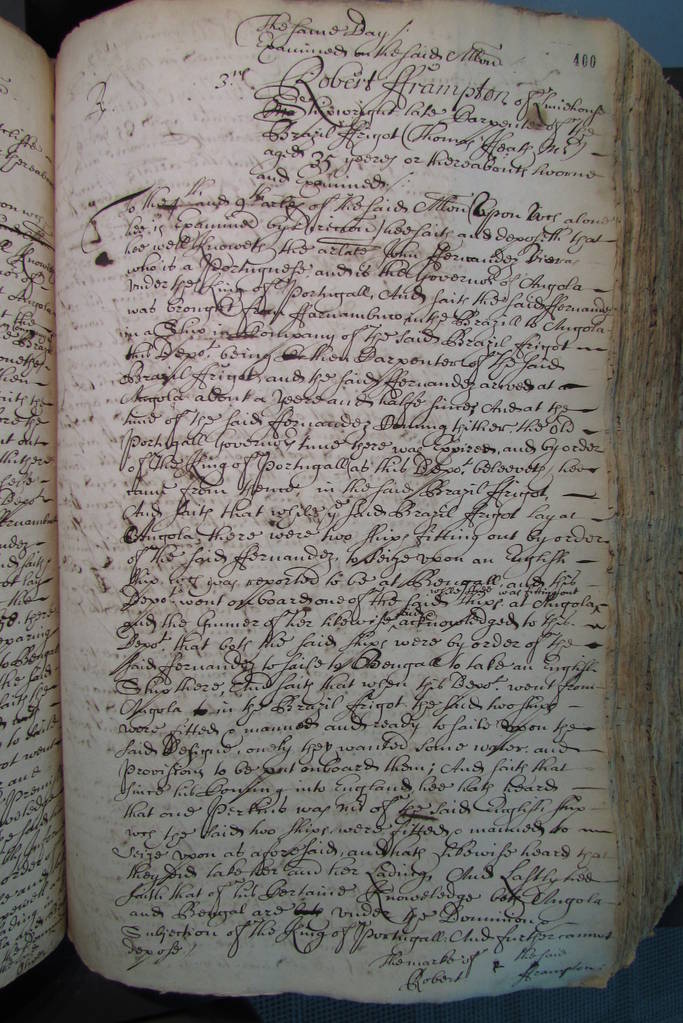 The same Day
Examined on the said Allon
400
3rd
Robert Frampton of Limehouse
Shipwright late Carpenter of the
Brazil ffrigot (Thomas Heath Mr)
aged 35 yeeres or thereabouts sworne
and examined
To the and 9th of the said Allon Upon wch alone
hee is examined by direction hee saith and deposeth that
hee well knoweth the arlate John ffernandez Viera
who is a Portuguese and is the Governor of Angola
under the King of Portugall, And saith the said ffernandez
was brought from ffarnambuco in the Brazill to Angola
in a Ship in Company of the said Brazil ffrigot
this Depot being then Carpenter of the said
Brazil ffrigot, and the said ffernandez arived at
Angola about a yeere and halfe since, And at the
time of the said ffernandez Coming thither the old
Portugall Governors time there was expired, and by order
of the King of Portugall as this Depot beleeveth hee
came from thence in the said Brazil ffrigot,
And saith that while ye said Brazil ffrigot lay at
Angola there were two ships fitting out by order
of the said ffernandez to seize upon an English
ship wch was reported to be at Bengall, and this
Depot went on board one of the said ships at Angola
while shee was fitting out
and the Gunner of her likewise acknowledged to this
Depot that both the said ships were by order of the
said ffernandez to saile to Bengall to take an English
Ship there, And saith that when this Depot went from
Angola in the Brazil ffrigot the said two ships
were fitted & manned and ready to saile upon the
said Designe, onely they wanted some water and
Provisions to be put onboard them; And saith that
since his Coming into England hee hath heard
that one Perkins was Mr of the said English ship
wch the said two ships were fitted & manned to
seize upon as aforesaid, and hath likewise heard that
they did take her and her Lading, And Lastly hee
saith that of his Certaine Knowledge both Angola
and Bengal are under the Dominion &
Subjection of the King of Portugall, And further cannot
depose
The marke of the said
Robert Frampton